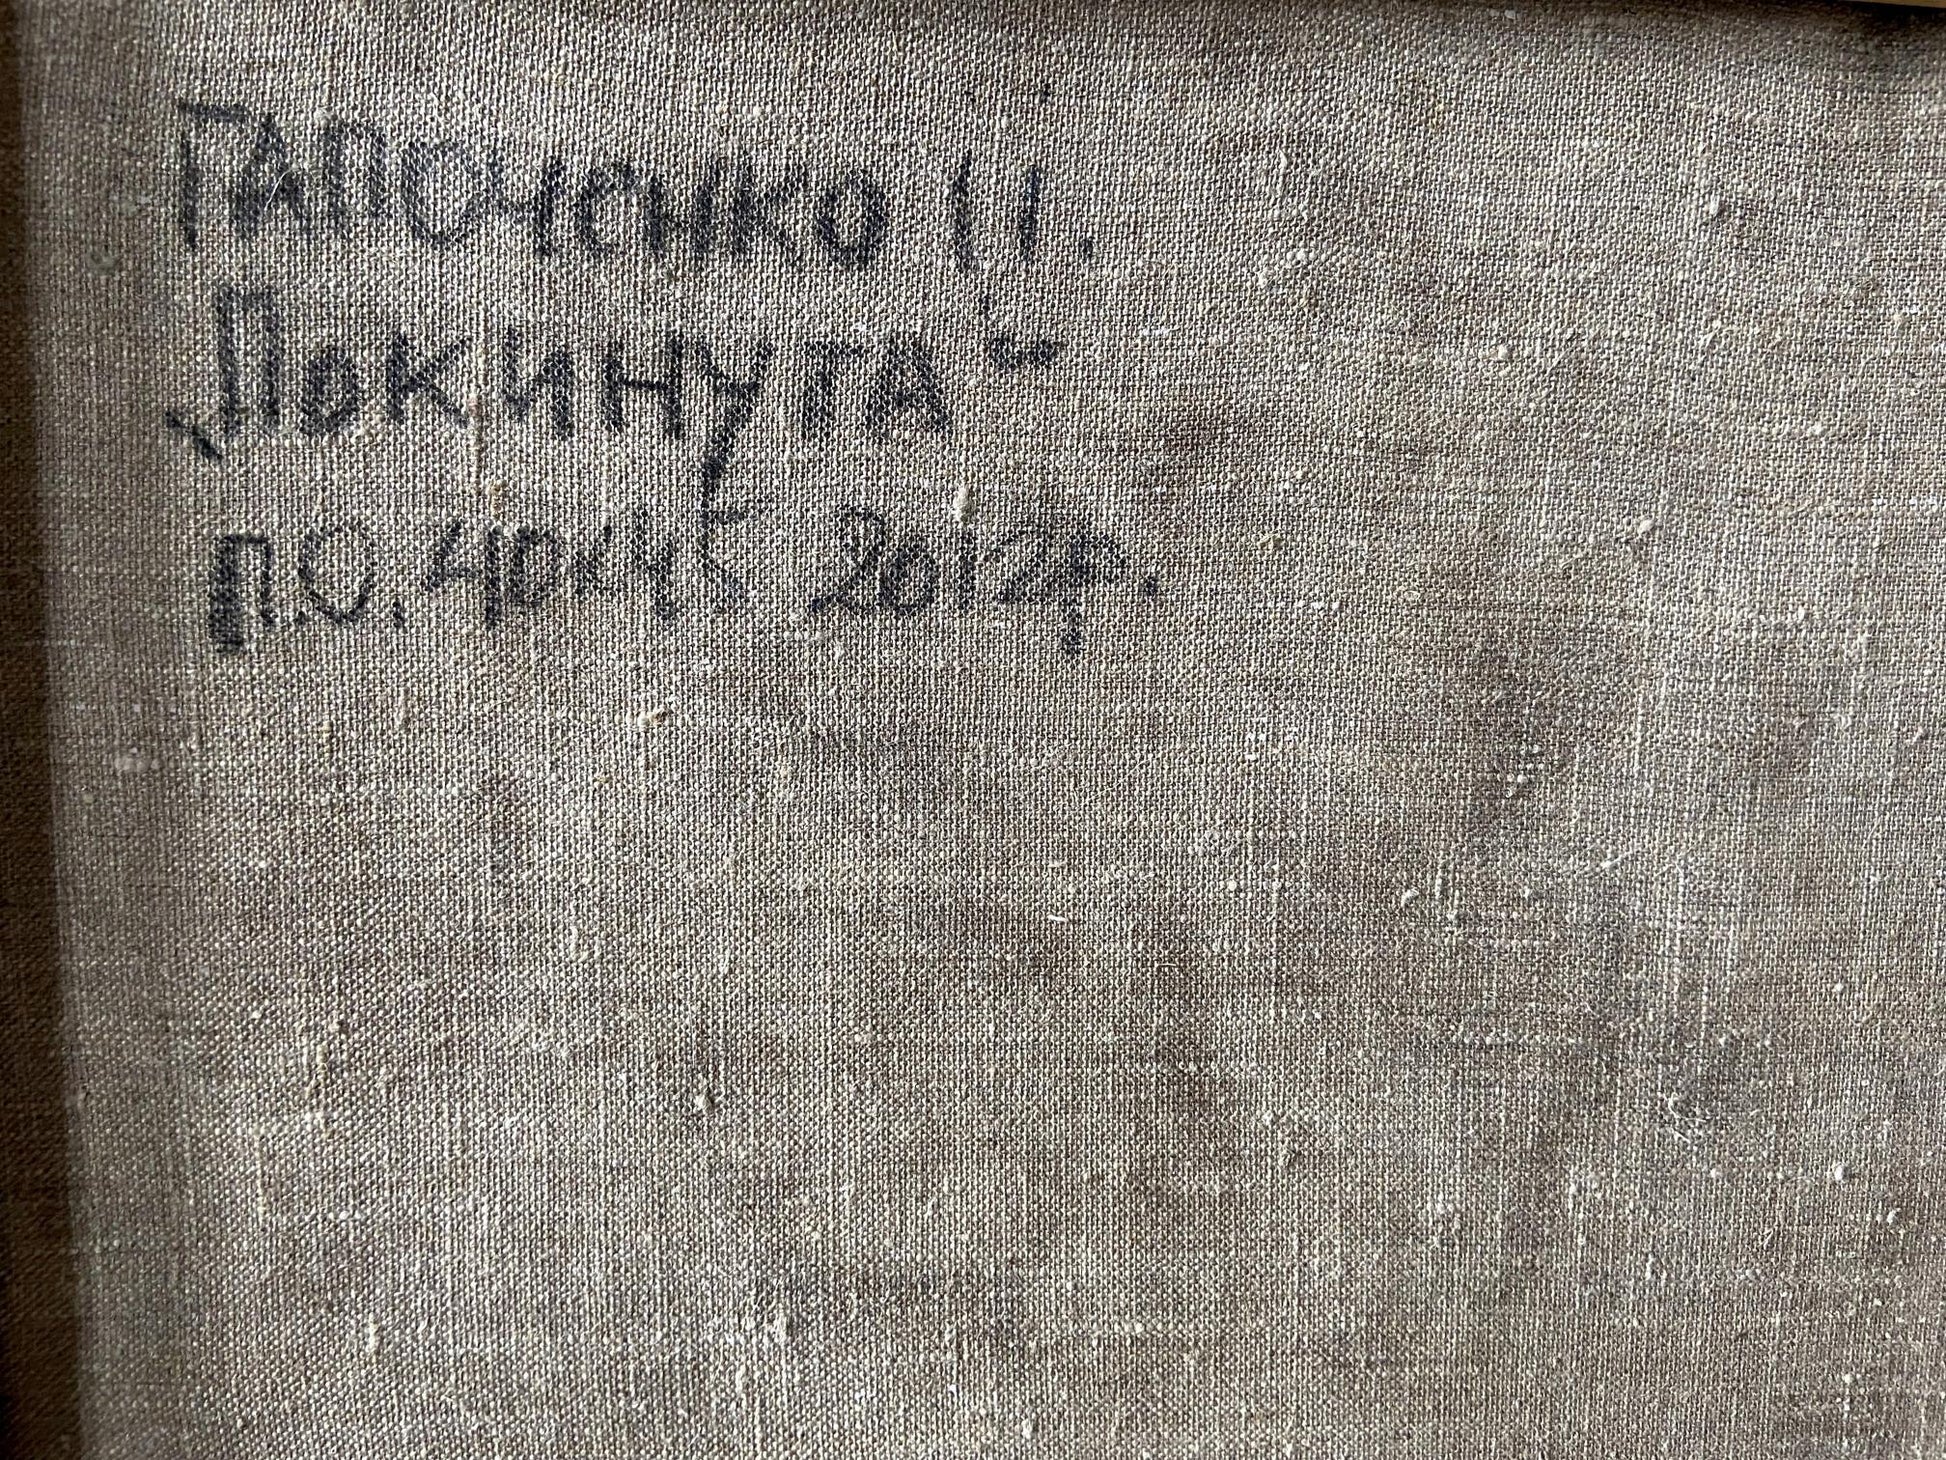 ГАПОЧЕНКО П.
„ПОКИНУТА“
П.О. 40х45 2012р.